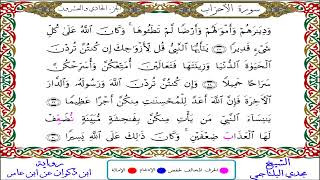 سورة الأحزاب
الجزء الحادي والعشرون
وَدِيَٰرَهُمْ وَأَمْوَٰلَهُمْ وَأَرْضًا لَّمْ تَطَـُٔوهَا ۚ وَكَانَ ٱللَّهُ عَلَىٰ كُلِّ
شَىْءٍ قَدِيرًا يَٰٓأَيُّهَا ٱلنَّبِىُّ قُل لِّأَزْوَٰجِكَ إِن كُنتُنَّ تُرِدْنَ
ٱلْحَيَوٰةَ ٱلدُّنْيَا وَزِينَتَهَا فَتَعَالَيْنَ أُمَتِّعْكُنَّ وَأُسَرِّحْكُنَّ
سَرَاحًا جَمِيلًا وَإِن كُنتُنَّ تُرِدْنَ ٱللَّهَ وَرَسُولَهُۥ وَٱلدَّارَ
ٱلْءَاخِرَةَ فَإِنَّ ٱللَّهَ أَعَدَّ لِلْمُحْسِنَٰتِ مِنكُنَّ أَجْرًا عَظِيمًا
يَٰنِسَآءَ ٱلنَّبِىِّ مَن يَأْتِ مِنكُنَّ بِفَٰحِشَةٍ مُّبَيِّنَةٍ نُضَعِّفْ
لَهَا ٱلْعَذَابَ ضِعْفَيْنِ ۚ وَكَانَ ذَٰلِكَ عَلَى ٱللَّهِ يَسِيرًا
الشيخ مجدي البلتاجي
الحرف المخالف لحفص الإدغام الإمالة
رواية ابن ذكوان عن ابن عامر